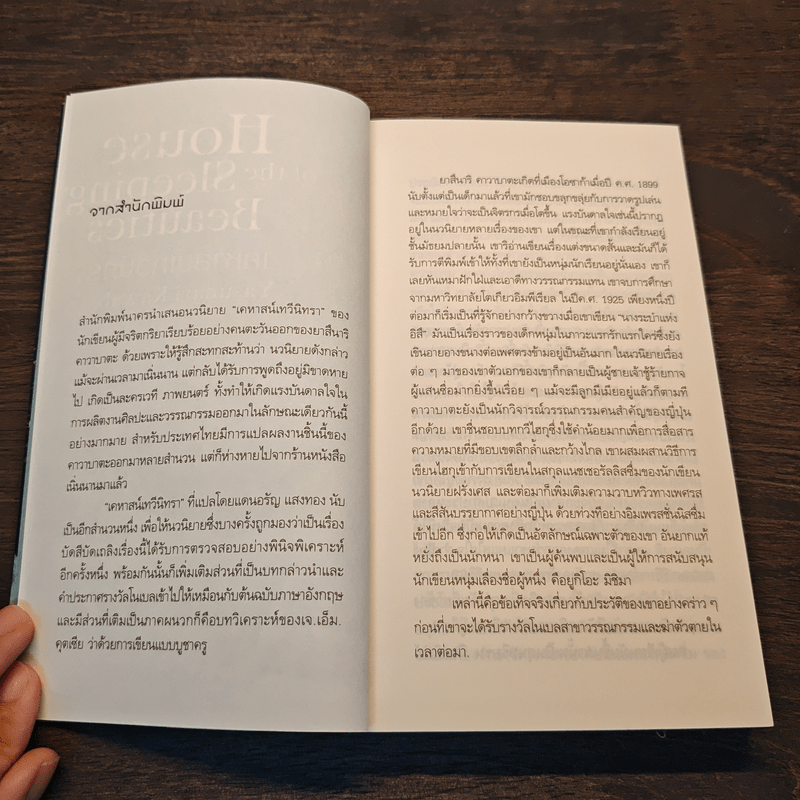 House
of the Sleeping
Beauties
จากสำนักพิมพ์
สำนักพิมพ์นาครนำเสนอนวนิยาย “เคหาสน์เทวีนิทรา” ของ
นักเขียนผู้มีจริตกริยาเรียบร้อยอย่างคนตะวันออกของยาสึนาริ
คาวาบาตะ ด้วยเพราะให้รู้สึกสะทกสะท้านว่า นวนิยายดังกล่าว
แม้จะผ่านเวลามาเนิ่นนาน แต่กลับได้รับการพูดถึงอยู่มิขาดหาย
ไป เกิดเป็นละครเวที ภาพยนตร์ ทั้งทำให้เกิดแรงบันดาลใจใน
การผลิตงานศิลปะและวรรณกรรมออกมาในลักษณะเดียวกันนี้
อย่างมากมาย สำหรับประเทศไทยมีการแปลผลงานชิ้นนี้ของ
คาวาบาตะออกมาหลายสำนวน แต่ก็ห่างหายไปจากร้านหนังสือ
เนิ่นนานมาแล้ว
“เคหาสน์เทวีนิทรา” ที่แปลโดยแดนอรัญ แสงทอง นับ
เป็นอีกสำนวนหนึ่ง เพื่อให้นวนิยายซึ่งบางครั้งถูกมองว่าเป็นเรื่อง
บัดสีบัดเถลิงเรื่องนี้ได้รับการตรวจสอบอย่างพินิจพิเคราะห์
อีกครั้งหนึ่ง พร้อมกันนั้นก็เพิ่มเติมส่วนที่เป็นบทกล่าวนำและ
คำประกาศรางวัลโนเบลเข้าไปให้เหมือนกับต้นฉบับภาษาอังกฤษ
และมีส่วนที่เติมเป็นภาคผนวกก็คือบทวิเคราะห์ของเจ.เอ็ม.
คุตเซีย ว่าด้วยการเขียนแบบบูชาครู
ยาสึนาริ คาวาบาตะเกิดที่เมืองโอซาก้าเมื่อปี ค.ศ. 1899
นับตั้งแต่เป็นเด็กมาแล้วที่เขามักชอบขลุกขลุ่ยกับการวาดรูปเล่น
และหมายใจว่าจะเป็นจิตรกรเมื่อโตขึ้น แรงบันดาลใจเช่นนี้ปรากฏ
อยู่ในนวนิยายหลายเรื่องของเขา แต่ในขณะที่เขากำลังเรียนอยู่
ชั้นมัธยมปลายนั้น เขาริอ่านเขียนเรื่องแต่งขนาดสั้นและมันก็ได้
รับการตีพิมพ์เข้าให้ทั้งที่เขายังเป็นหนุ่มนักเรียนอยู่นั่นเอง เขาก็
เลยหันเหมาฝักใฝ่และเอาดีทางวรรณกรรมแทน เขาจบการศึกษา
จากมหาวิทยาลัยโตเกียวอิมพีเรียล ในปีค.ศ. 1925 เพียงหนึ่งปี
ต่อมาก็เริ่มเป็นที่รู้จักอย่างกว้างขวางเมื่อเขาเขียน “นางระบำแห่ง
อิสึ” มันเป็นเรื่องราวของเด็กหนุ่มในภาวะแรกรักแรกใคร่ซึ่งยัง
เขินอายอางขนางต่อเพศตรงข้ามอยู่เป็นอันมาก ในนวนิยายเรื่อง
ต่อ ๆ มาของเขาตัวเอกของเขาก็กลายเป็นผู้ชายเจ้าชู้ร้ายกาจ
ผู้แสนซื่อมากยิ่งขึ้นเรื่อย ๆ แม้จะมีลูกมีเมียอยู่แล้วก็ตามที
คาวาบาตะยังเป็นนักวิจารณ์วรรณกรรมคนสำคัญของญี่ปุ่น
อีกด้วย เขาชื่นชอบบทกวีไฮกุซึ่งใช้คำน้อยมากเพื่อการสื่อสาร
ความหมายที่มีขอบเขตลึกล้ำและกว้างไกล เขาผสมผสานวิธีการ
เขียนไฮกุเข้ากับการเขียนในสกุลแนชเชอรัลลิสซึ่มของนักเขียน
นวนิยายฝรั่งเศส และต่อมาก็เพิ่มเติมความวาบหวิวทางเพศรส
และสีสันบรรยากาศอย่างญี่ปุ่น ด้วยท่วงทีอย่างอิมเพรสชั่นนิสซึ่ม
เข้าไปอีก ซึ่งก่อให้เกิดเป็นอัตลักษณ์เฉพาะตัวของเขา อันยากแท้
หยั่งถึงเป็นนักหนา เขาเป็นผู้ค้นพบและเป็นผู้ให้การสนับสนุน
นักเขียนหนุ่มเลื่องชื่อผู้หนึ่ง คือยูกิโอะ มิชิมา
เหล่านี้คือข้อเท็จจริงเกี่ยวกับประวัติของเขาอย่างคร่าว ๆ
ก่อนที่เขาจะได้รับรางวัลโนเบลสาขาวรรณกรรมและฆ่าตัวตายใน
เวลาต่อมา.